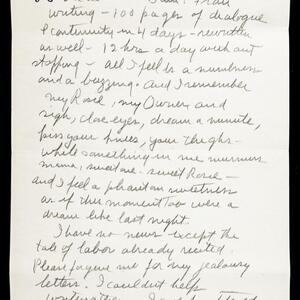 writing - 100 pages of dialogue
& continuity in 4 days - rewritten
as well - 12 hrs a day without
stopping - all I feel is a numbness
and a buzzing. And I remember
my Rosie, my Owner and
sigh, close eyes, dream a minute,
kiss your knees, your thighs -
while something in me murmurs
mama, sweet one - sweet Rosie -
and I feel a phantom sweetness
as if this moment too were a
dream like last night.
I have no news except the
tale of labor already recited.
Please forgive me for my jealousy
letters. I couldn't help